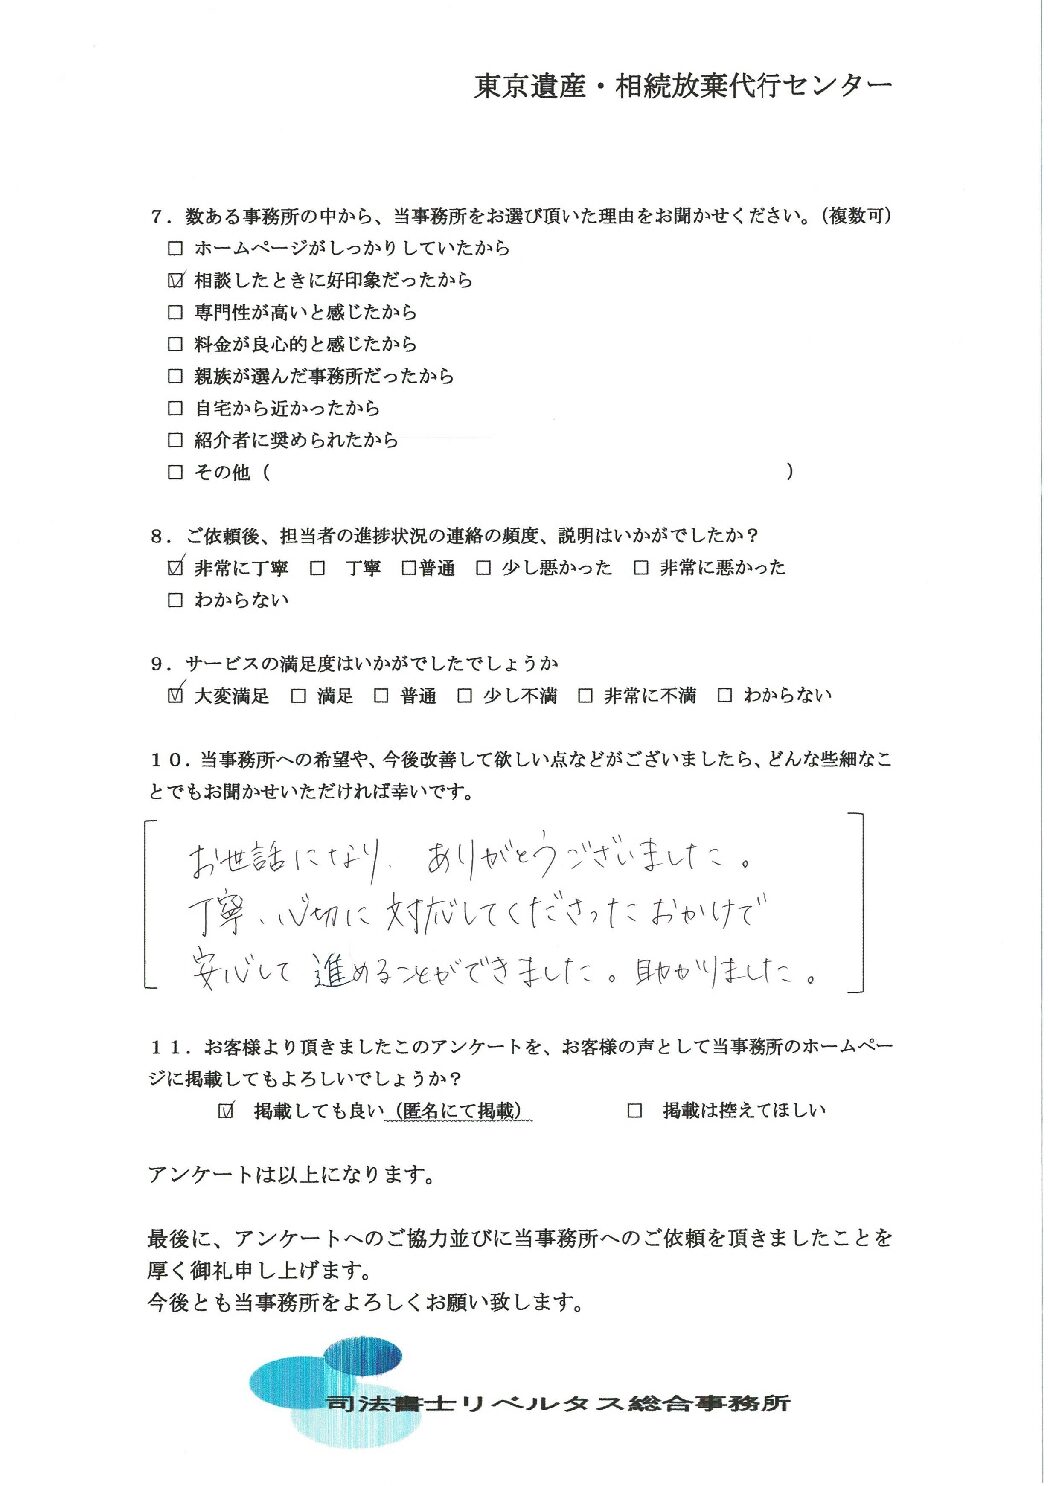 東京遺産・相続放棄代行センター
７．数ある事務所の中から、当事務所をお選び頂いた理由をお聞かせください。（複数可）
□ ホームページがしっかりしていたから
☑ 相談したときに好印象だったから
□ 専門性が高いと感じたから
□ 料金が良心的と感じたから
□ 親族が選んだ事務所だったから
□ 自宅から近かったから
□ 紹介者に奨められたから
□ その他（　　　　　　　　　　　　　　　　　　　　　　　　　　　　）
８．ご依頼後、担当者の進捗状況の連絡の頻度、説明はいかがでしたか？
☑ 非常に丁寧　□　丁寧　□普通　□ 少し悪かった　□ 非常に悪かった
□ わからない
９．サービスの満足度はいかがでしたでしょうか
☑ 大変満足　□ 満足　□ 普通　□ 少し不満　□ 非常に不満　□ わからない
１０．当事務所への希望や、今後改善して欲しい点などがございましたら、どんな些細なこ
とでもお聞かせいただければ幸いです。
お世話になり、ありがとうございました。
丁寧、心切に対応してくださったおかげで
安心して進めることができました。助かりました。
１１．お客様より頂きましたこのアンケートを、お客様の声として当事務所のホームペー
ジに掲載してもよろしいでしょうか？
☑　掲載しても良い（匿名にて掲載）　　　　　□　掲載は控えてほしい
アンケートは以上になります。
最後に、アンケートへのご協力並びに当事務所へのご依頼を頂きましたことを
厚く御礼申し上げます。
今後とも当事務所をよろしくお願い致します。
司法書士リベルタス総合事務所